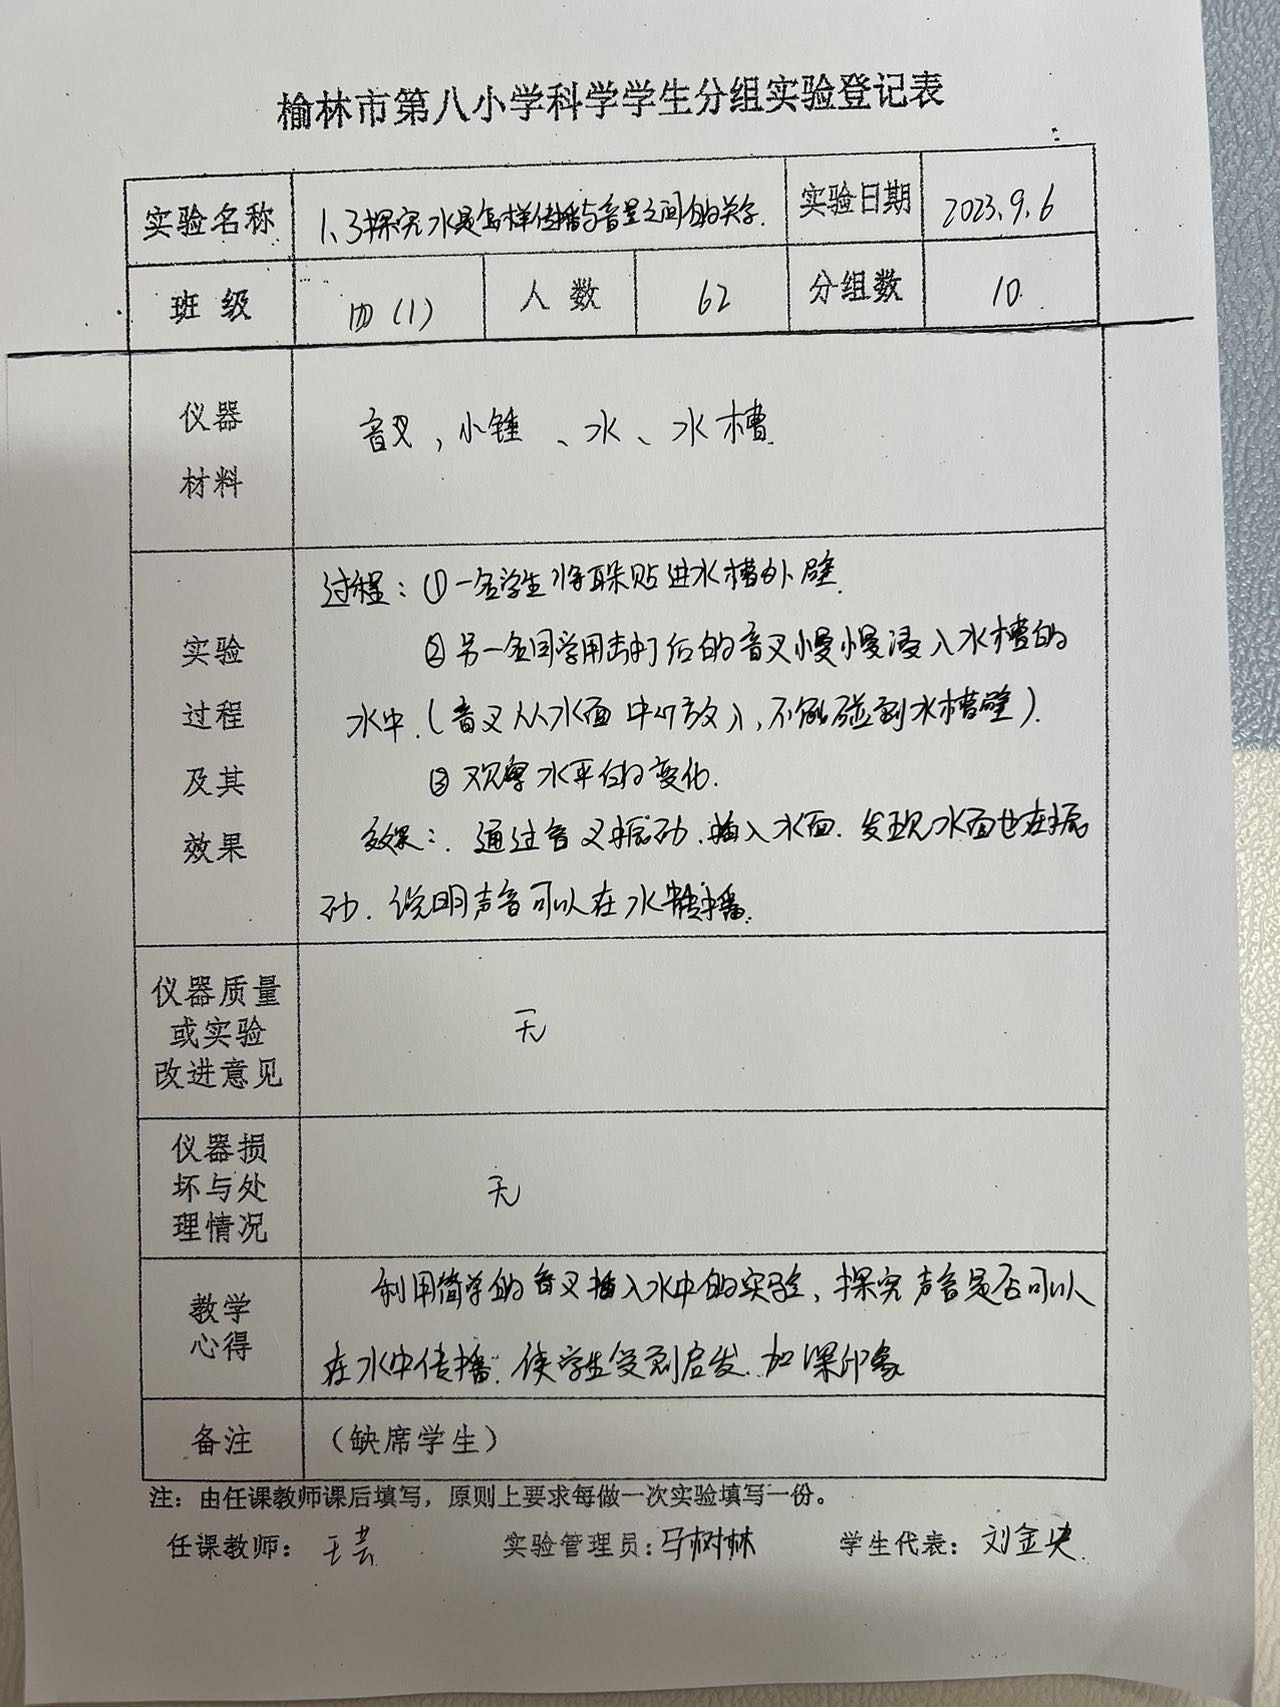 榆林市第八小学科学学生分组实验登记表
实验名称 1.3探究水是怎样传播与音量之间的关系. 实验日期 2023.9.6
班级 四(1) 人数 62 分组数 10.
仪器
材料
音叉，小锤、水、水槽.
实验
过程
及其
效果
过程：①一名学生将耳朵贴进水槽外壁.
②另一名同学用击打后的音叉慢慢浸入水槽的
水中.(音叉从水面中心放入,不能碰到水槽壁).
③观察水平面的变化.
效果：. 通过音叉振动.插入水面.发现水面也在振
动.说明声音可以在水中传播.
仪器质量
或实验
改进意见
无
仪器损
坏与处
理情况
无
教学
心得
利用简单的音叉插入水中的实验、探究声音是否可以
在水中传播.使学生受到启发.加深印象
备注 （缺席学生）
注：由任课教师课后填写，原则上要求每做一次实验填写一份。
任课教师：王芸 实验管理员：马树林 学生代表：刘金